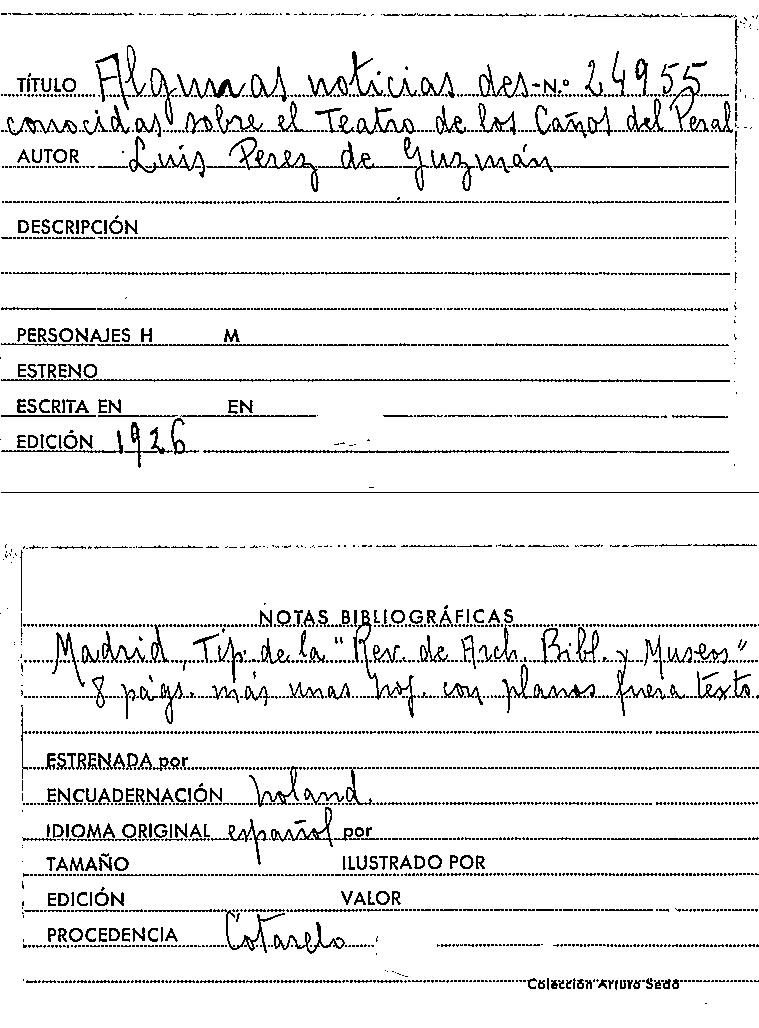 TÍTULO Algunas noticias des- N.º 24955
conocidas sobre el Teatro de los Caños del Peral
AUTOR Luis Perez de Guzmán
DESCRIPCIÓN
PERSONAJES H M
ESTRENO
ESCRITA EN EN
EDICIÓN 1926
NOTAS BIBLIOGRÁFICAS
Madrid, Tip. de la "Rev. de Arch. Bibl. y Museos"
8 págs. más unas hoj. con planos fuera texto.
ESTRENADA por
ENCUADERNACIÓN holand.
IDIOMA ORIGINAL español por
TAMAÑO ILUSTRADO POR
EDICIÓN VALOR
PROCEDENCIA Cotarelo
Colección Arturo Sedó